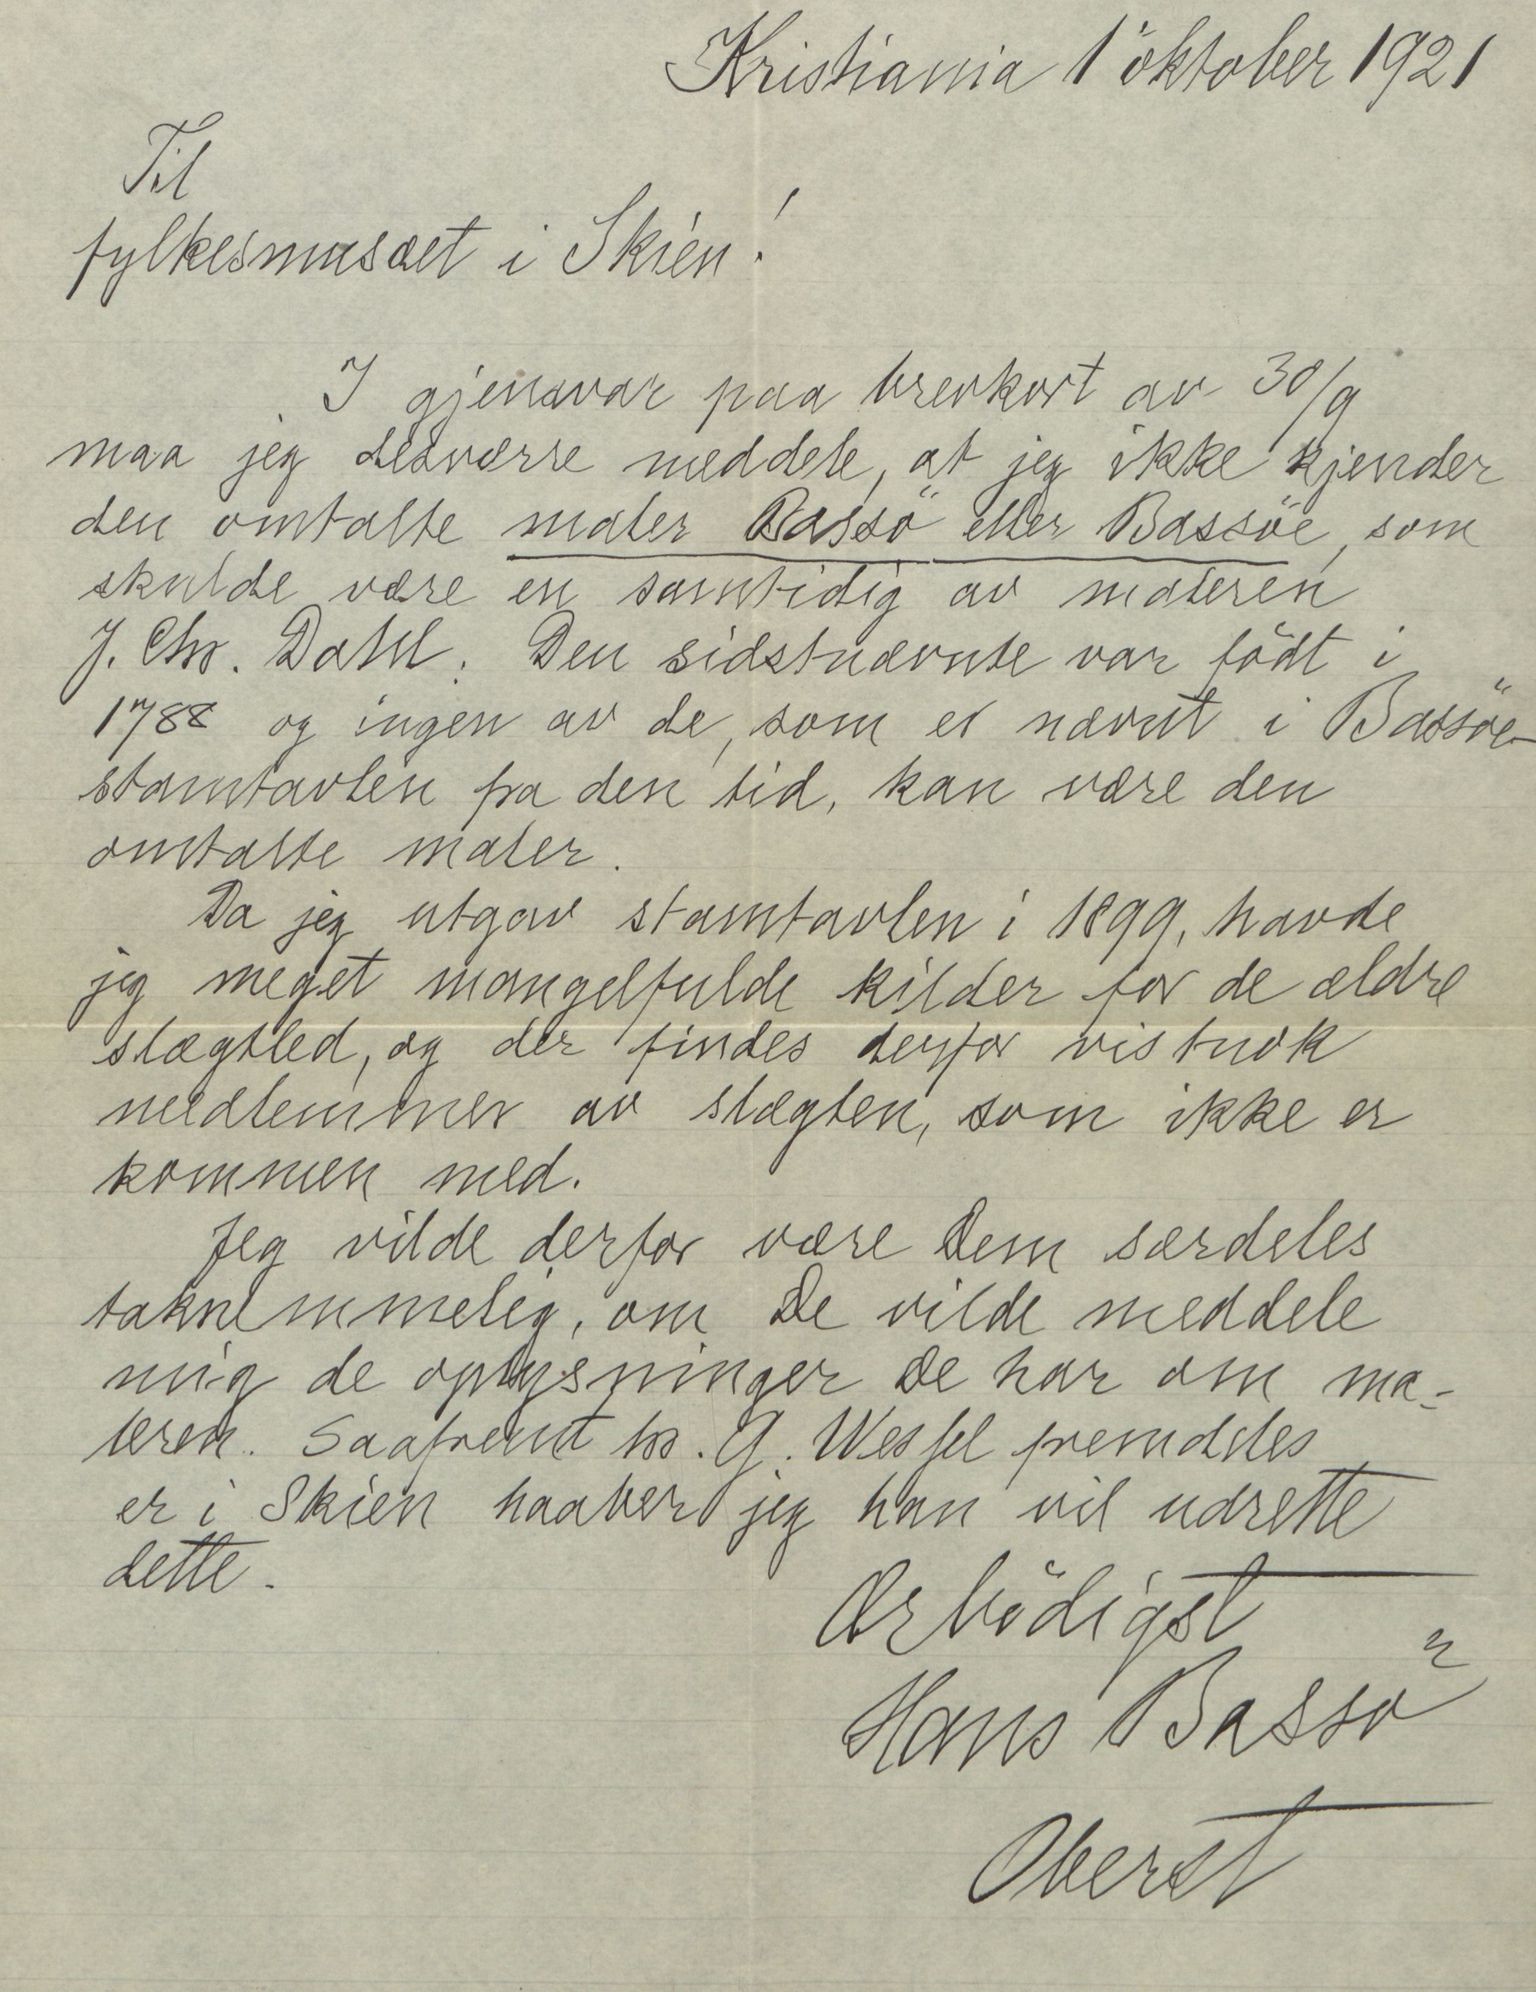 Kristiania 1' oktober 1921
Til
fylkesmusæet i Skien!
I gjensvar paa brevkort av 30/9
maa jeg desværre meddele, at jeg ikke kjender
den omtalte maler Bassö eller Bassöe, som
skulde være en samtidig av maleren
J. Chr. Dahl. Den sidstnævnte var födt i
1788 og ingen av de, som er nævnt i Bassöe-
stamtavlen fra den tid, kan være den
omtalte maler.
Da jeg utgav stamtavlen i 1899, havde
jeg meget mangelfulde kilder for de ældre
slægtled, og der findes derfor vistnok
medlemmer av slægten, som ikke er
kommen med.
Jeg vilde derfor være Dem særdeles
taknemmelig, om De vilde meddele
mig de oplysninger De har om ma-
leren. Saafremt hr. G. Wessel fremdeles
er i Skien haaber jeg han vil udrette
dette.
Ærbödigst
Hans Bassö
Oberst